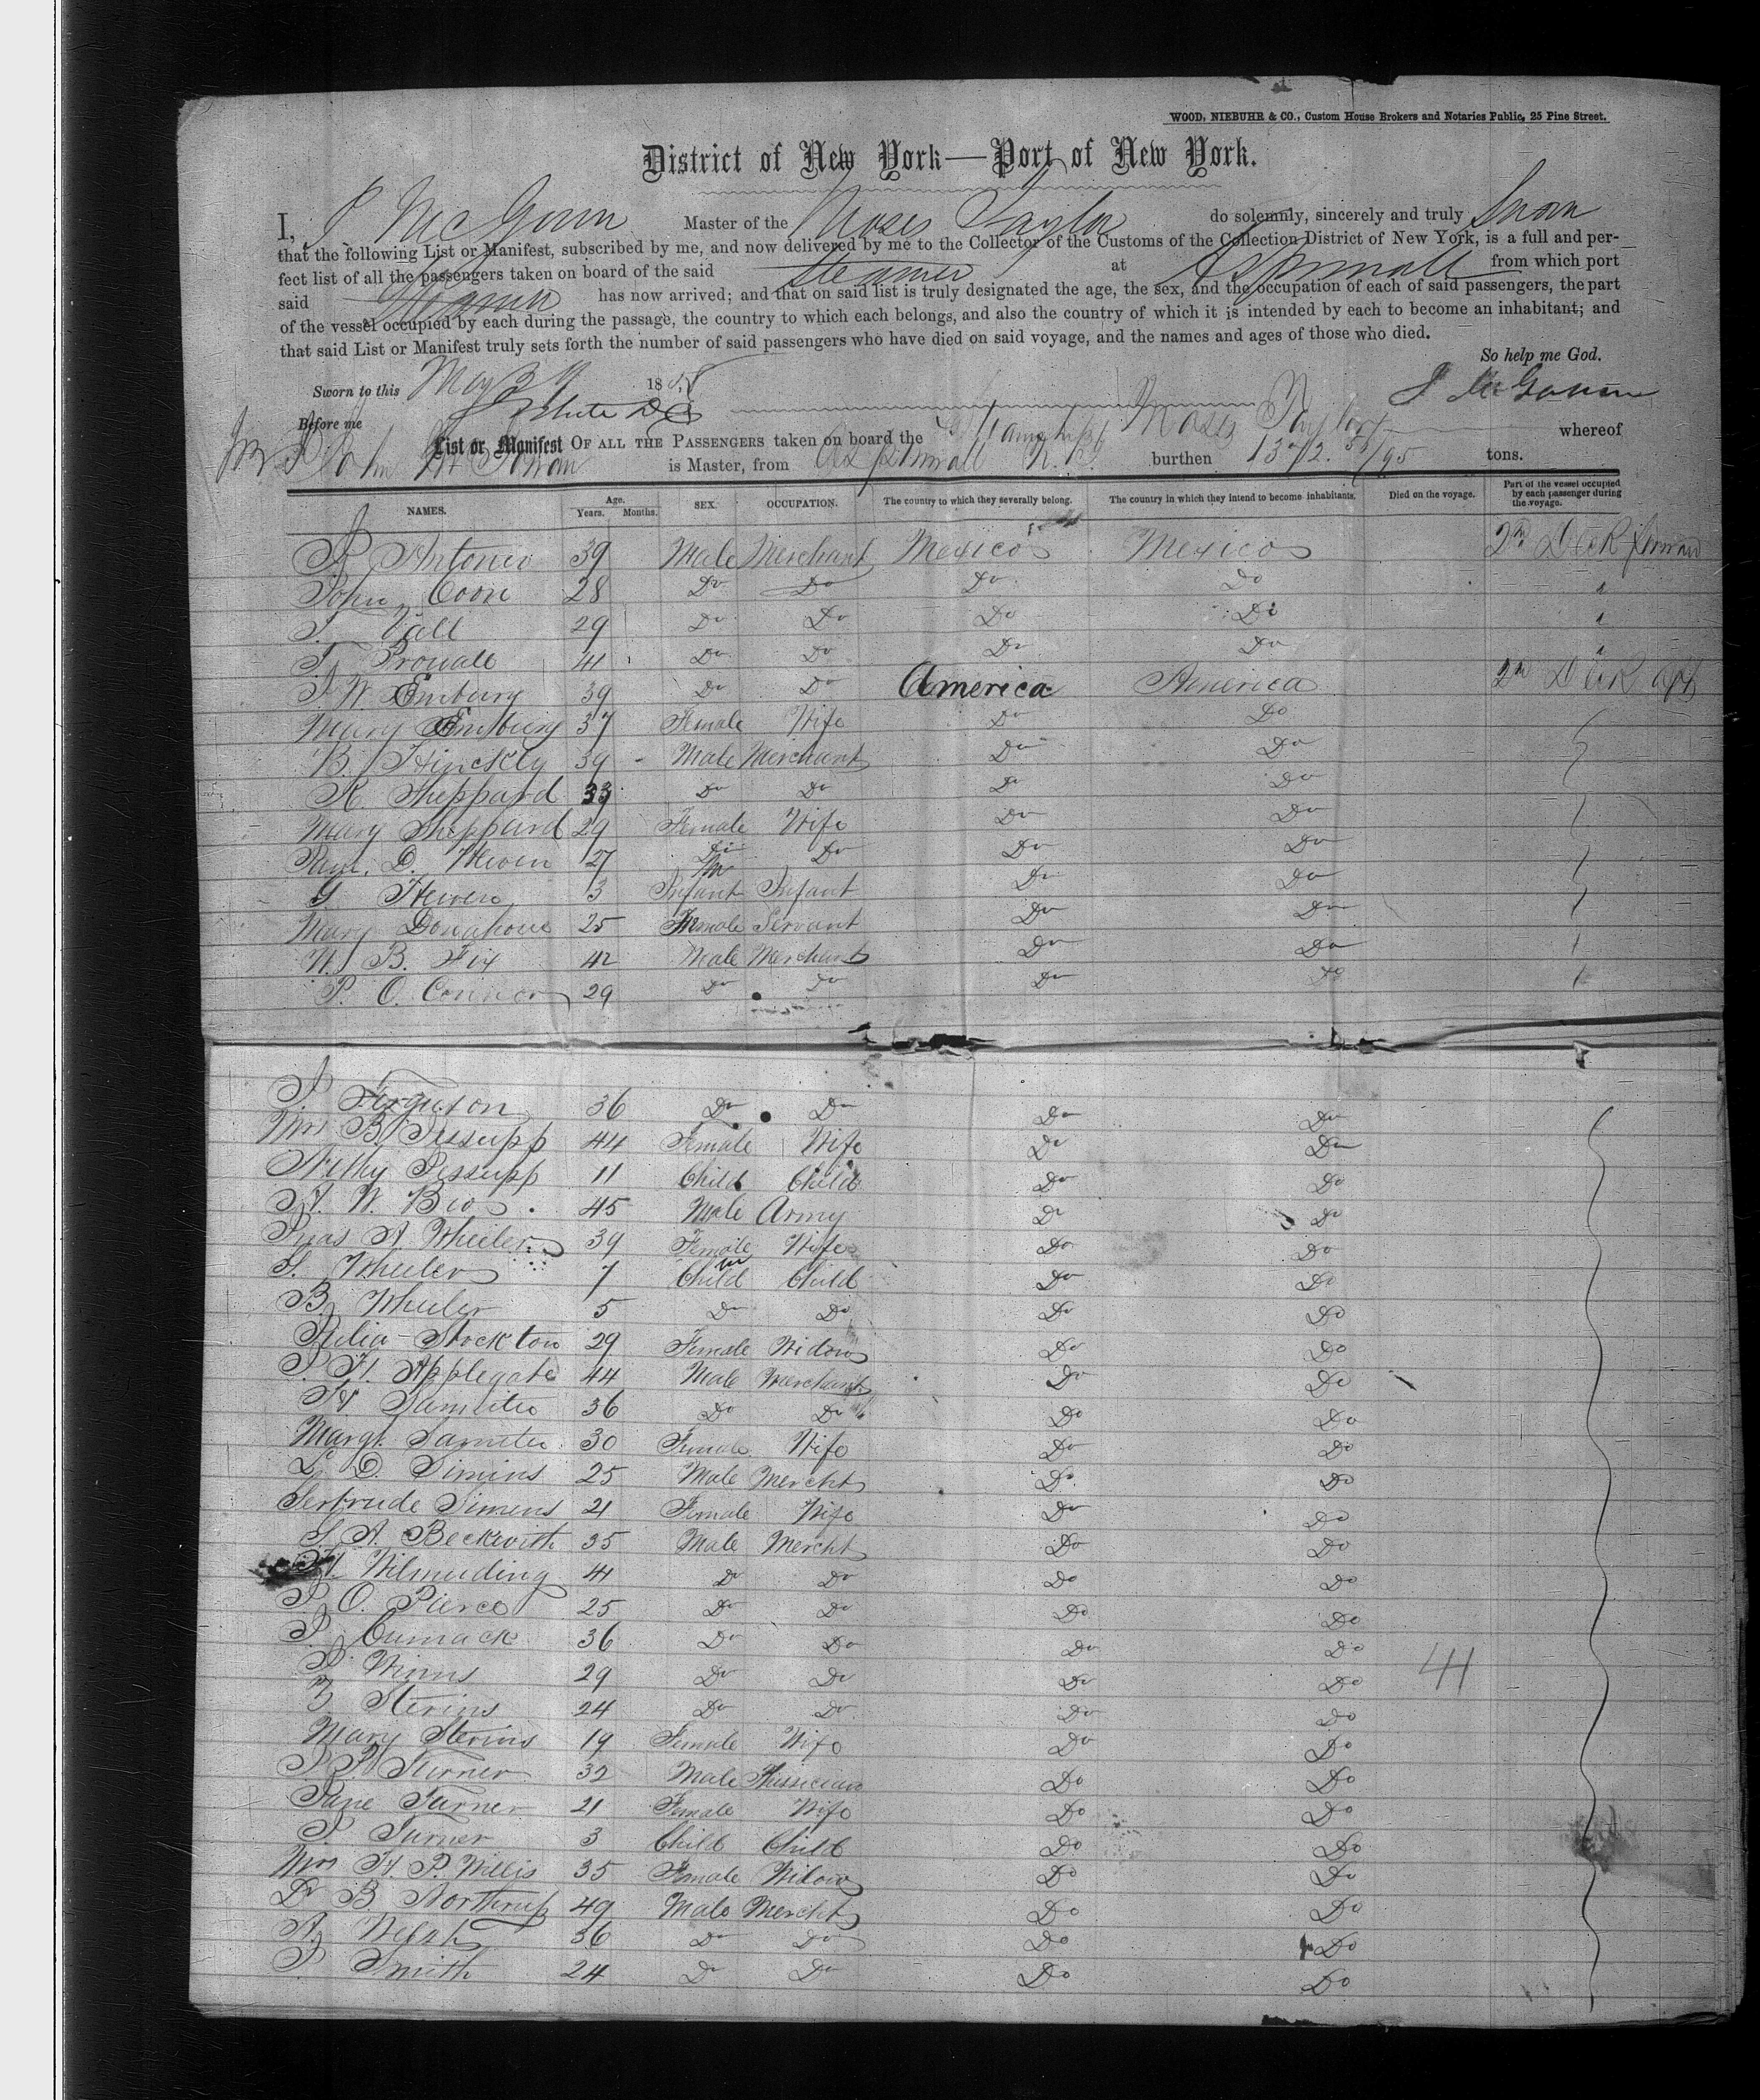 WOOD, NIEBUHR & CO., Custom House Brokers and Notaries Public, 25 Pine Street.
District of New York—Port of New York.
I, J McGown Master of the Moses Taylor do solemnly, sincerely and truly Swear
that the following List or Manifest, subscribed by me, and now delivered by me to the Collector of the Customs of the Collection District of New York, is a full and per-
fect list of all the passengers taken on board of the said Steamer at Aspinwall from which port
said Steamer has now arrived; and that on said list is truly designated the age, the sex, and the occupation of each of said passengers, the part
of the vessel occupied by each during the passage, the country to which each belongs, and also the country of which it is intended by each to become an inhabitant; and
that said List or Manifest truly sets forth the number of said passengers who have died on said voyage, and the names and ages of those who died.
So help me God.
Sworn to this May 1858 J McGown
Before me
List or Manifest OF ALL THE PASSENGERS taken on board the Steamship Moses Taylor whereof
John McGowan is Master, from Aspinwall N. G. burthen 1372. /95 tons.
NAMES. Age. Years. Months. SEX. OCCUPATION. The country to which they severally belong. The country in which they intend to become inhabitants. Died on the voyage. Part of the vessel occupied by each passenger during the voyage.
Antonio 39 Male Merchant Mexico Mexico 2nd Deck forward
John Coon 28 Do Do Do Do "
Vall 29 Do Do Do Do "
41 Do Do Do Do "
J. W. Embury 39 Do Do America America 2nd Deck aft
Mary Embury 37 Female Wife Do Do
B. Hinckly 39 Male Merchant Do Do
R. Sheppard 33 Do Do Do Do
Mary Sheppard 29 Female Wife Do Do
D. Heven 27 Do Do Do Do
G Heven 3 Infant Infant Do Do
Mary Donahoue 25 Female Servant Do Do
B. Fix 42 Male Merchant Do Do
P. O. Connor 29 Do Do Do Do
J Ferguson 36 Do Do Do Do
Mrs B Jessupp 44 Female Wife Do Do
Jessupp 11 Child Child Do Do
W. 45 Male Army Do Do
A Wheeler 39 Female Wife Do Do
S. Wheeler 7 Child Child Do Do
B. Wheeler 5 Do Do Do Do
Stockton 29 Female Widow Do Do
J. H. Applegate 44 Male Merchant Do Do
36 Do Do Do Do
Margt. 30 Female Wife Do Do
D. Simins 25 Male Mercht Do Do
Gertrude Simens 21 Female Wife Do Do
S. A. Beckwith 35 Male Mercht Do Do
Wilmerding 41 Do Do Do Do
J O. Pierce 25 Do Do Do Do
J. Cumack 36 Do Do Do Do
J. Winns 29 Do Do Do Do 41
Sterins 24 Do Do Do Do
Mary Sterins 19 Female Wife Do Do
Turner 32 Male Phisician Do Do
Jane Turner 21 Female Wife Do Do
J. Turner 3 Child Child Do Do
Mrs H. P. Willis 35 Female Widow Do Do
Dr B. Northrup 49 Male Mercht Do Do
A. 36 Do Do Do Do
J Smith 24 Do Do Do Do